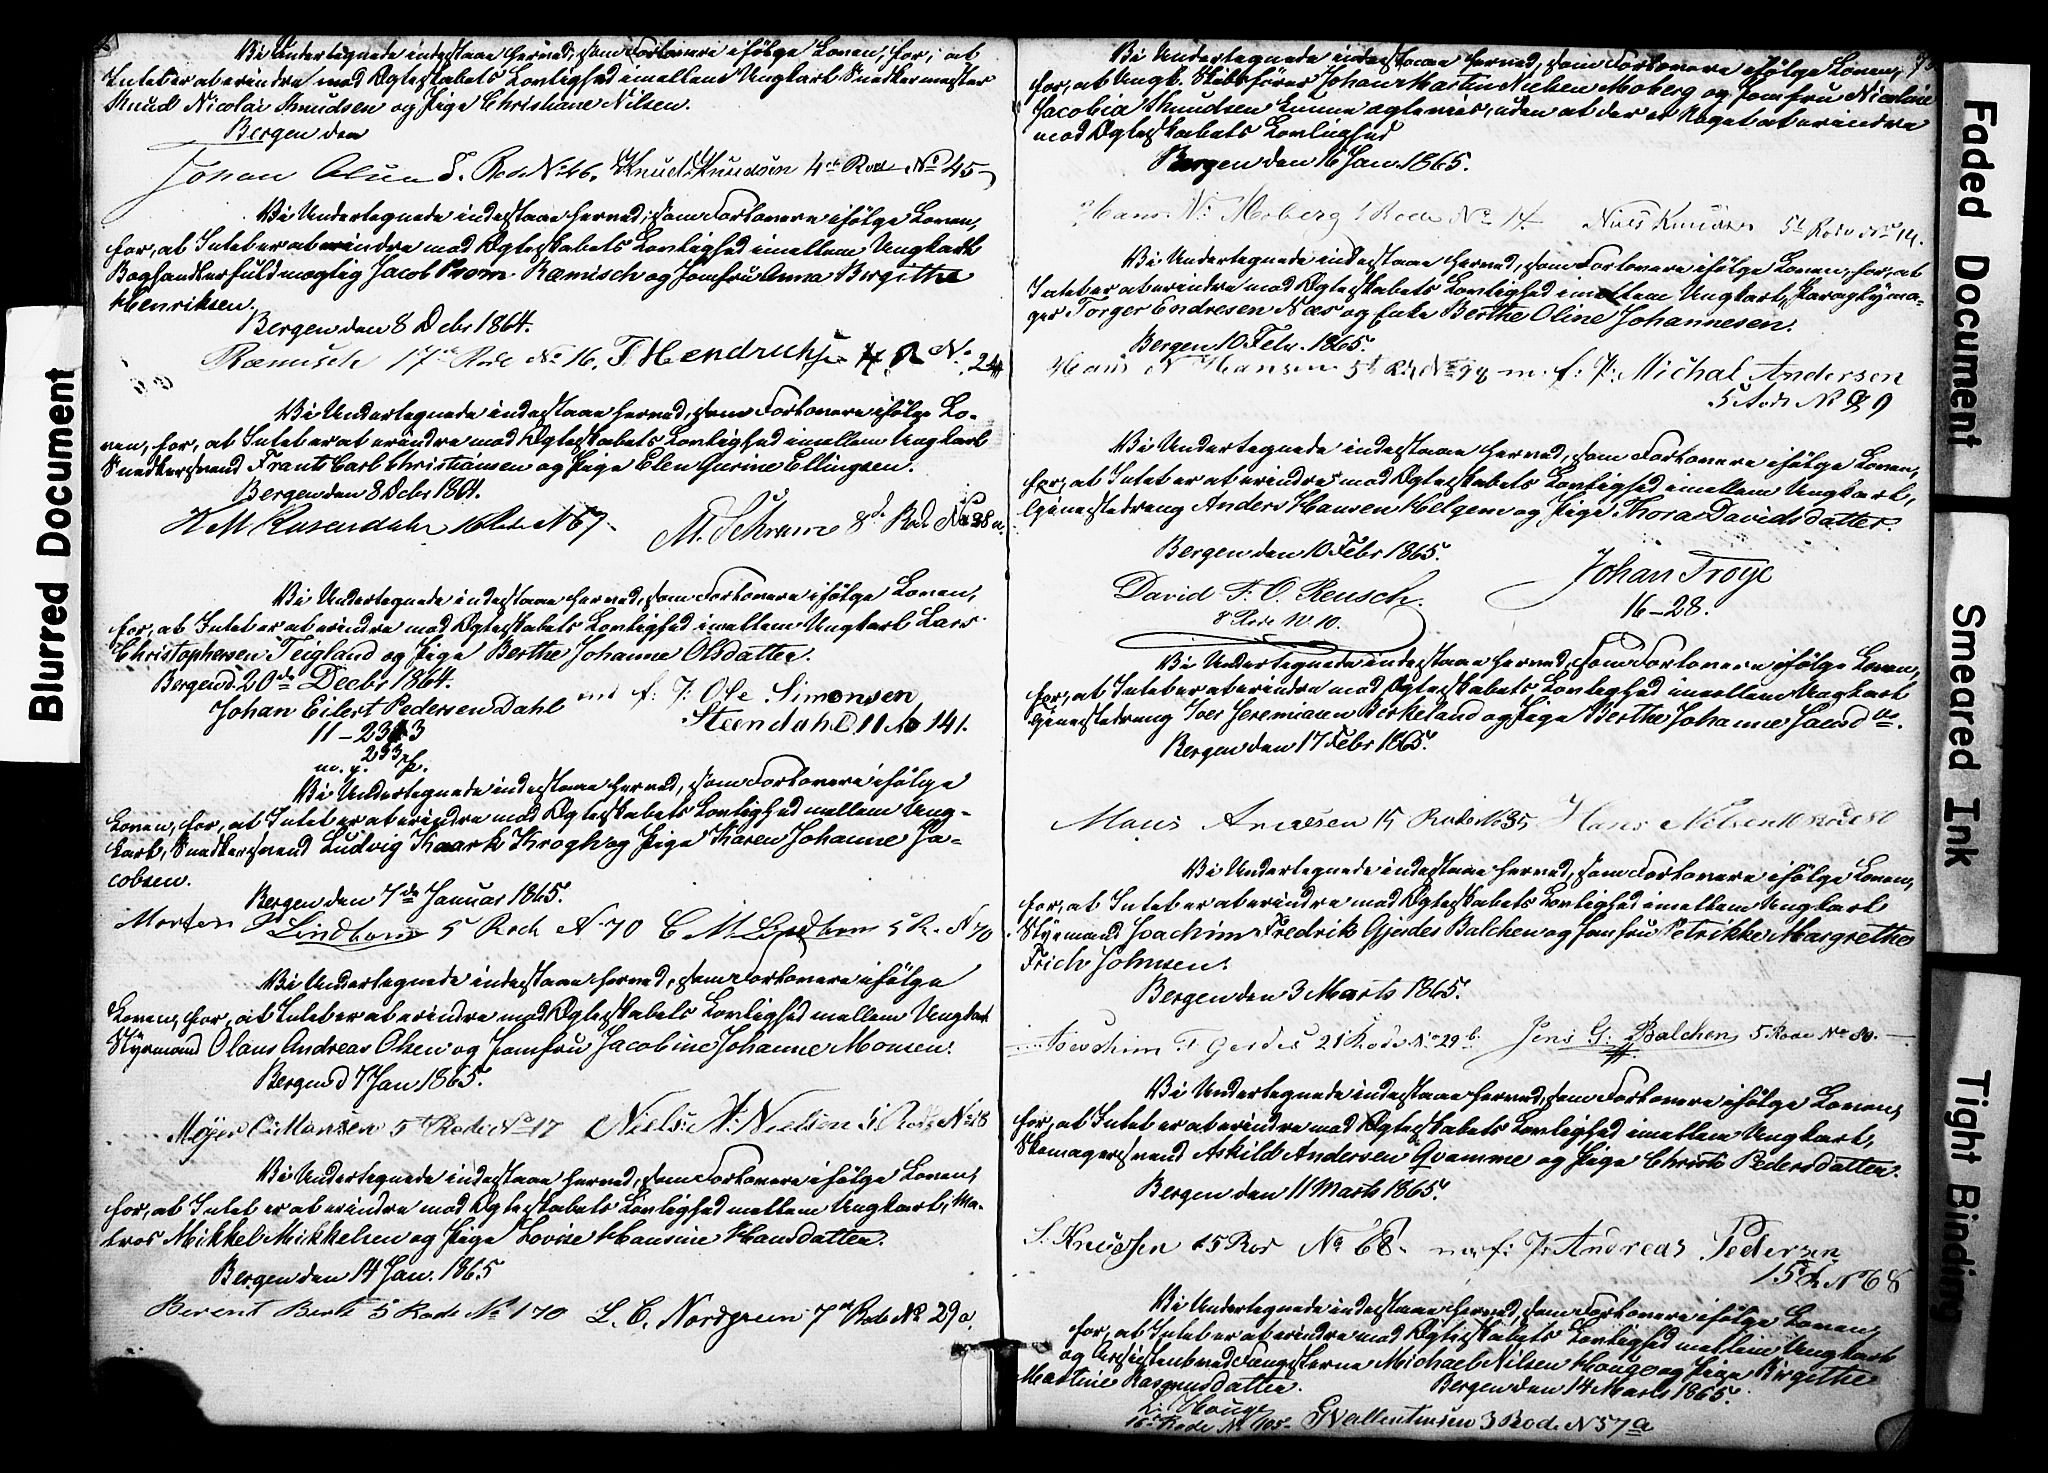 Vi Undertegnede indestaae herved, som Forlovere ifølge Loven, for, at
Intet er at erindre mod Ægteskabets Lovlighed imellem Ungkarl Snedkermester
Knud Nicolai Knudsen og Pige Christiane Nilsen.
Bergen den
Johan Olsen 5. Rode No 46. Knud Knudsen 4de Rode No 45
Vi Undertegnede indestaae herved, som Forlovere ifølge Loven,
for, at Intet er at erindre mod Ægteskabets Lovlighed imellem Ungkarl
Boghandlerfuldmægtig Jacob Prom Ræmisch og Jomfru Anna Birgithe
Henriksen.
Bergen den 8 Decbr 1864.
Ræmisch 17de Rode No 16. F Hendrichsen 4 R No 24
Vi Undertegnede indestaae herved, som Forlovere ifølge Lo-
ven, for, at Intet er at erindre mod Ægteskabets Lovlighed imellem Ungkarl
Snedkersvend Frants Carl Christiansen og Pige Elen Gurine Ellingsen.
Bergen den 8 Decbr 1864.
H M Rosendahl 16 Rode N 67. M. Schram 8de Rode No 38 a.
Vi Undertegnede indestaae herved, som Forlovere ifølge Loven,
for, at Intet er at erindre mod Ægteskabets Lovlighed imellem Ungkarl Lars
Christophersen Teigland og Pige Berthe Johanne Olsdatter.
Bergen d. 20de Decbr 1864.
Johan Eilert Pedersen Dahl m f. P. Ole Simonsen
11 - 233 Steendahl 11 No 141.
233
m. f. P.
Vi Undertegnede indestaae herved, som Forlovere ifølge
Loven, for, at Intet er at erindre mod Ægteskabets Lovlighed mellem Ung-
karl, Snedkersvend Ludvig Kaark Krogh og Pige Karen Johanne Ja-
cobsen.
Bergen den 7de Januar 1865.
Morten Lindborn 5 Rode N 70 C M Lindborn 5 R. N 70
Vi Undertegnede indestaae herved, som Forlovere ifølge
Loven, for, at Intet er at erindre mod Ægteskabets Lovlighed mellem Ungkarl
Styrmand Olaus Andreas Olsen og Jomfru Jacobine Johanne Monsen.
Bergen d 7 Jan 1865.
Mejer Monsen 5t Rode No 17 Niels N. Nielsen 5 Rode No 18
Vi Undertegnede indestaae herved, som Forlovere ifølge Loven,
for, at Intet er at erindre mod Ægteskabets Lovlighed mellem Ungkarl, Ma-
tros Mikkel Mikkelsen og Pige Lovise Hansine Hansdatter.
Bergen den 14 Jan. 1865
Berent Berts 5 Rode No 170 L. C. Nordgreen 7de Rode No 29 a.
Vi Undertegnede indestaae herved, som Forlovere ifølge Loven,
for, at Ungk. Skibsfører Johan Martin Nielsen Moberg og Jomfru Nicoline
Jacobia Knudsen kunne ægtevies, uden at der er Noget at erindre
mod Ægteskabets Lovlighed
Bergen den 16 Jan. 1865.
Hans N. Moberg 5 Rode No 14. Niels Knudsen 5t Rode No 14.
Vi Undertegnede indestaae herved, som Forlovere ifølge Loven, for, at
Intet er at erindre mod Ægteskabets Lovlighed imellem Ungkarl, Paraplyma-
ger Torger Endresen Næs og Enke Berthe Oline Johannesen.
Bergen 10 Febr. 1865.
Hans N Hansen 5t Rd No 98 m. f. P. Michal Andersen
5 Rode No 99
Vi Undertegnede indestaae herved, som Forlovere ifølge Loven,
for, at Intet er at erindre mod Ægteskabets Lovlighed imellem Ungkarl,
Tjenestedreng Anders Hansen Helgem og Pige Thora Davidsdatter.
Bergen den 10 Febr 1865.
David F. O. Reusch. Johan Troye
8 Rode No 10. 16-28.
Vi Undertegnede indestaae herved, som Forlovere ifølge Loven,
for, at Intet er at erindre mod Ægteskabets Lovlighed imellem Ungkarl
Tjenestedreng Iver Jeremiasen Birkeland og Pige Berthe Johanne Larsdtr.
Bergen den 17 Febr 1865.
Mons Andersen 15 Rode No 35 Hans Nilsen 10 Rode 80
Vi Undertegnede indestaae herved, som Forlovere ifølge Loven,
for, at Intet er at erindre mod Ægteskabets Lovlighed imellem Ungkarl
Styrmand Joachim Fredrik Gjerdes Balchen og Jomfru Petrikke Margrethe
Frich Johnsen.
Bergen den 3 Marts 1865.
Joachim F Gerdes 21 Rode No 29 b. Jens G. Balchen 5 Rode No 80.
Vi Undertegnede indestaae herved, som Forlovere ifølge Loven,
for, at Intet er at erindre mod Ægteskabets Lovlighed imellem Ungkarl,
Skomagersvend Askild Andersen Qvamme og Pige Christi Pedersdatter.
Bergen den 11 Marts 1865.
S. Knudsen 15 Rod No 68. m. f. P. Andreas Pedersen
15 R No 68
Vi Undertegnede indestaae herved, som Forlovere ifølge Loven,
for, at Intet er at erindre mod Ægteskabets Lovlighed mellem Ungkarl
og Assistent ved Fængslerne Michael Nilsen Hauge og Pige Birgithe
Martine Rasmusdatter. Bergen den 14 Marts 1865.
L. Hauge
16 Rode No 105. G Vallentinsen 3 Rode N 57 a
Blurred Document
Faded Document
Smeared Ink
Tight Binding